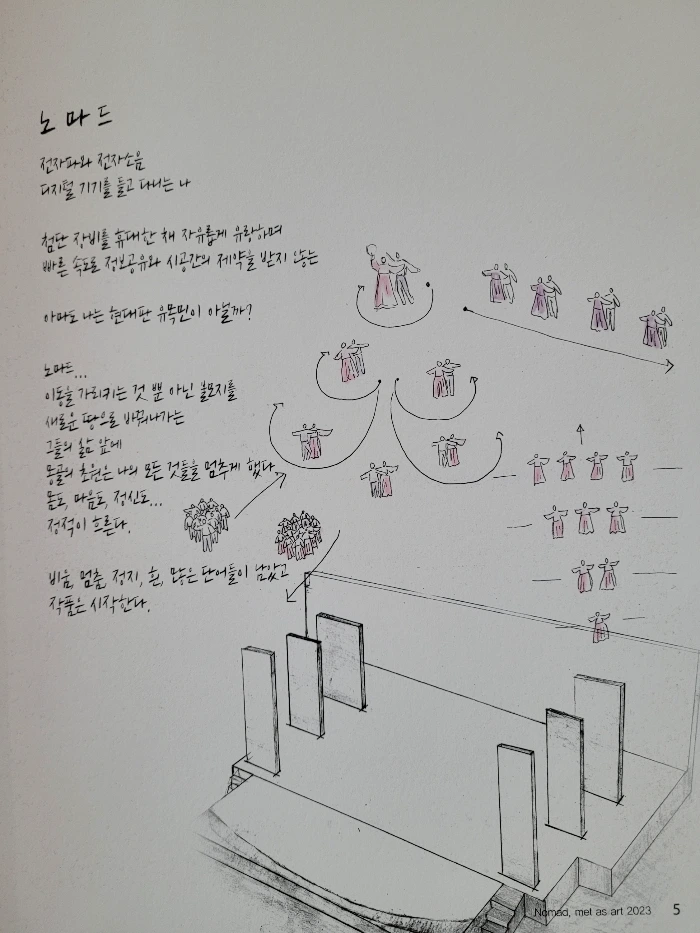 노마드
전자파와 전자소음
디지털 기기를 들고 다니는 나
첨단 장비를 휴대한 채 자유롭게 유랑하며
빠른 속도로 정보공유와 시공간의 제약을 받지 않는
아마도 나는 현대판 유목민이 아닐까?
노마드...
이동을 가리키는 것 뿐 아닌 불모지를
새로운 땅으로 바꿔나가는
그들의 삶 앞에
몽골의 초원은 나의 모든 것들을 멈추게 했다
몸도, 마음도, 정신도...
정적이 흐른다.
비움, 멈춤, 정지, 흰, 많은 단어들이 남았고
작품은 시작한다.
Nomad, met as art 2023 5